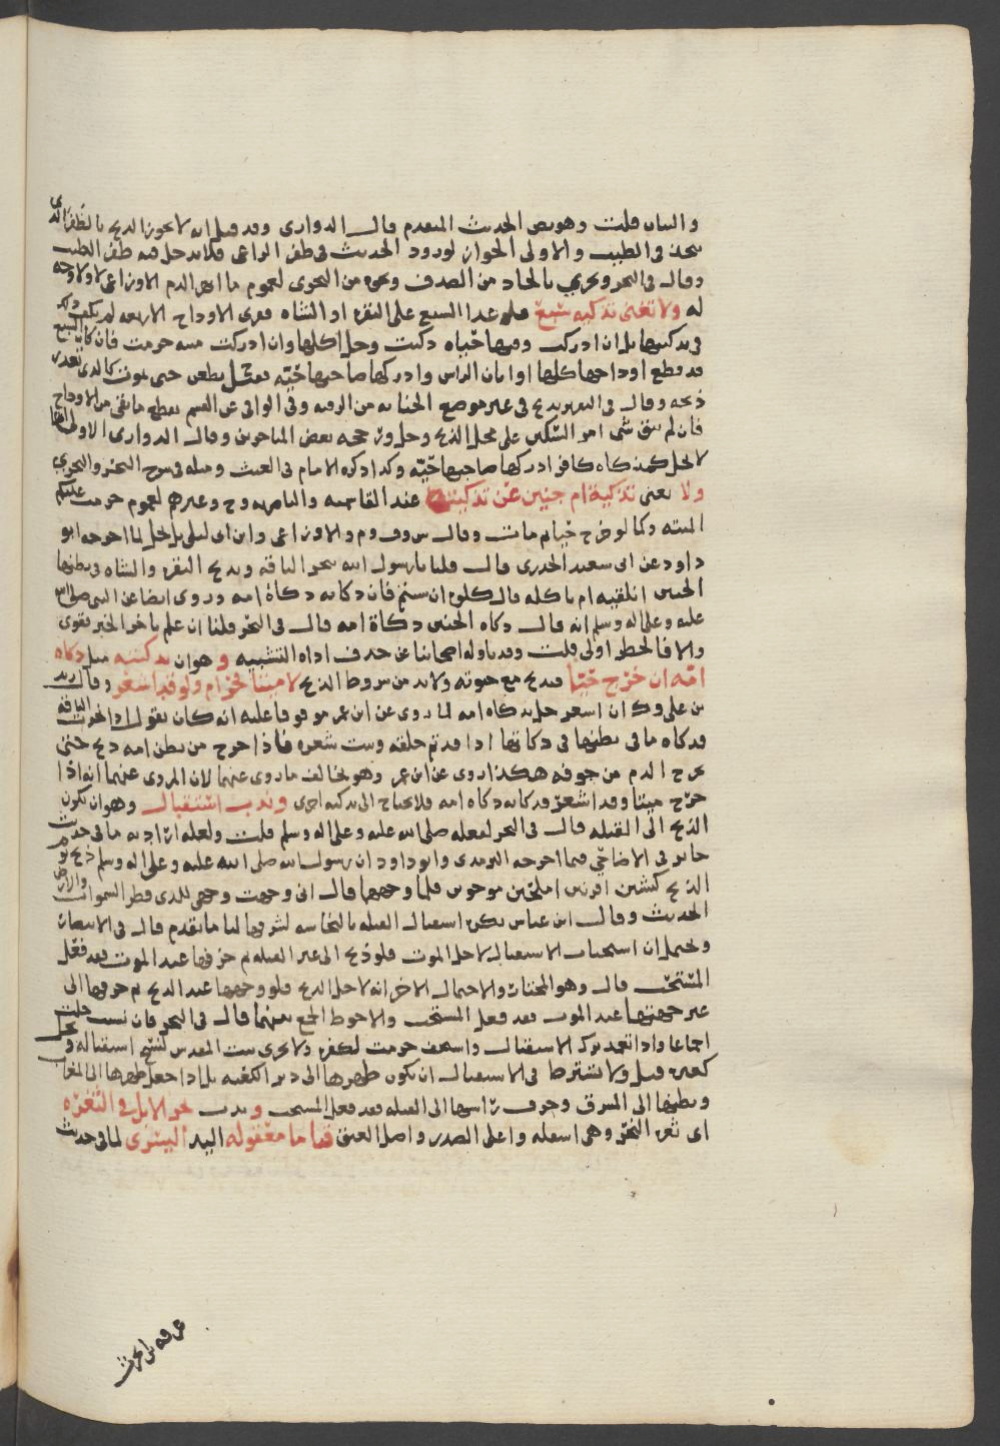 والبيان قلت وهو نص الحديث المتقدم قال الدواري وقد قيل انه لا يجوز الذبح بالظفر الذي
في الطيب والاولى الجواز لورود الحديث في ظفر الراعي فلا يدخل فيه ظفر الطيب
وقال في البحر ويجزي بالحاد من الصدف ونحوه من البحري لعموم ما انهر الدم الاوزاعي لا ولا وجه
له ولا تغني تذكية سبع فلو عدا السبع على البقرة او الشاة ففرى الاوداج الاربعة لم يكف ذلك
في تذكيتها بل ان ادركت وفيها حياة ذكيت وحل اكلها وان ادركت ميتة حرمت فان كان السبع
قد قطع اوداجها كلها او ابان الراس وادركها صاحبها حية بطعن حتى تموت كالذي تعذر
ذبحه وقال في يذبح في غير موضع الجناية من الرقبة وفي الوافي عن يقطع ما بقي من الاوداج
فان لم يبق شي امر السكين على محل الذبح وحل ورجحه بعض المتاخرين وقال الدواري الاولى انها
لا تحل كمذكاة كافر ادركها صاحبها حية وكذا ذكره الامام في الغيث ومثله في شرح البحر والبحري
ولا تغني تذكية ام جنين عن تذكيته عند القاسمية والناصرية وح وغيرهم لعموم حرمت عليكم
الميتة وكما لو خرج حيا ثم مات وقال س وف وم والاوزاعي وابن ابي ليلى بل يحل لما اخرجه ابو
داود عن ابي سعيد الخدري قال قلنا يا رسول الله ننحر الناقة ونذبح البقرة والشاة في بطنها
الجنين انلقيه ام ناكله قال كلوه ان شئتم فان ذكاته ذكاة امه وروي ايضا عن النبي صلى الله
عليه وعلى اله وسلم انه قال ذكاة الجنين ذكاة امه قال في البحر قلنا ان علم تاخر الخبر فقوي
والا فالحظر اولى قلت وقد تاوله اصحابنا عن حذف اداة التشبيه وهو ان تذكيته مثل ذكاة
امه ان خرج حيا فيذبح مع حيوته ولا بد من شروط الذبح لا ميتا فحرام ولو قد اشعر وقال زيد
بن علي وك ان اشعر حل بذكاة امه لما روي عن ابن عمر موقوفا عليه انه كان يقول اذا نحرت الناقة
فذكاة ما في بطنها في ذكاتها اذا قد تم خلقه ونبت شعره فاذا خرج من بطن امه ذبح حتى
يخرج الدم من جوفه هكذا روي عن ابن عمر وهو يخالف ما روي عنهما لان المروي عنهما انه اذا
خرج ميتا وقد اشعر فذكاته ذكاة امه فلا يحتاج الى تذكية اخرى وندب استقبال وهو ان يكون
الذبح الى القبلة قال في البحر لفعله صلى الله عليه وعلى اله وسلم قلت ولعله اراد به ما في حديث
جابر في الاضاحي فيما اخرجه الترمذي وابو داود ان رسول الله صلى الله عليه وعلى اله وسلم ذبح يوم
الذبح كبشين اقرنين املحين موجوين فلما وجههما قال اني وجهت وجهي للذي فطر السموات والارض
الحديث وقال ابن عباس يكره استقبال القبلة بالنجاسة لشرفها لنا ما تقدم قال في الانتصار
ويحتمل ان استحباب الاستقبال لاجل الموت فلو ذبح الى غير القبلة ثم حرفها عند الموت فقد فعل
المستحب قال وهو المختار والاحتمال الاخر انه لاجل الذبح فلو وجهها عند الذبح ثم حرفها الى
غير جهتها عند الموت فقد فعل المستحب والاحوط الجمع بينهما قال في البحر فان نسي حلت
اجماعا واذا تعمد ترك الاستقبال واستخف حرمت لكفره ولا يجزي بيت المقدس لنسخ استقباله و
كغيره قيل ولا يشترط في الاستقبال ان يكون ظهرها الى دبر الكعبة بل اذا جعل ظهرها الى المغرب
وبطنها الى المشرق وحرف راسها الى القبلة فقد فعل المستحب وندب نحر الابل في الثغرة
اي ثغرة النحر وهي اسفله واعلى الصدر واصل العنق قياما معقولة اليد اليسرى لما في حديث
عرفه بن الحرث